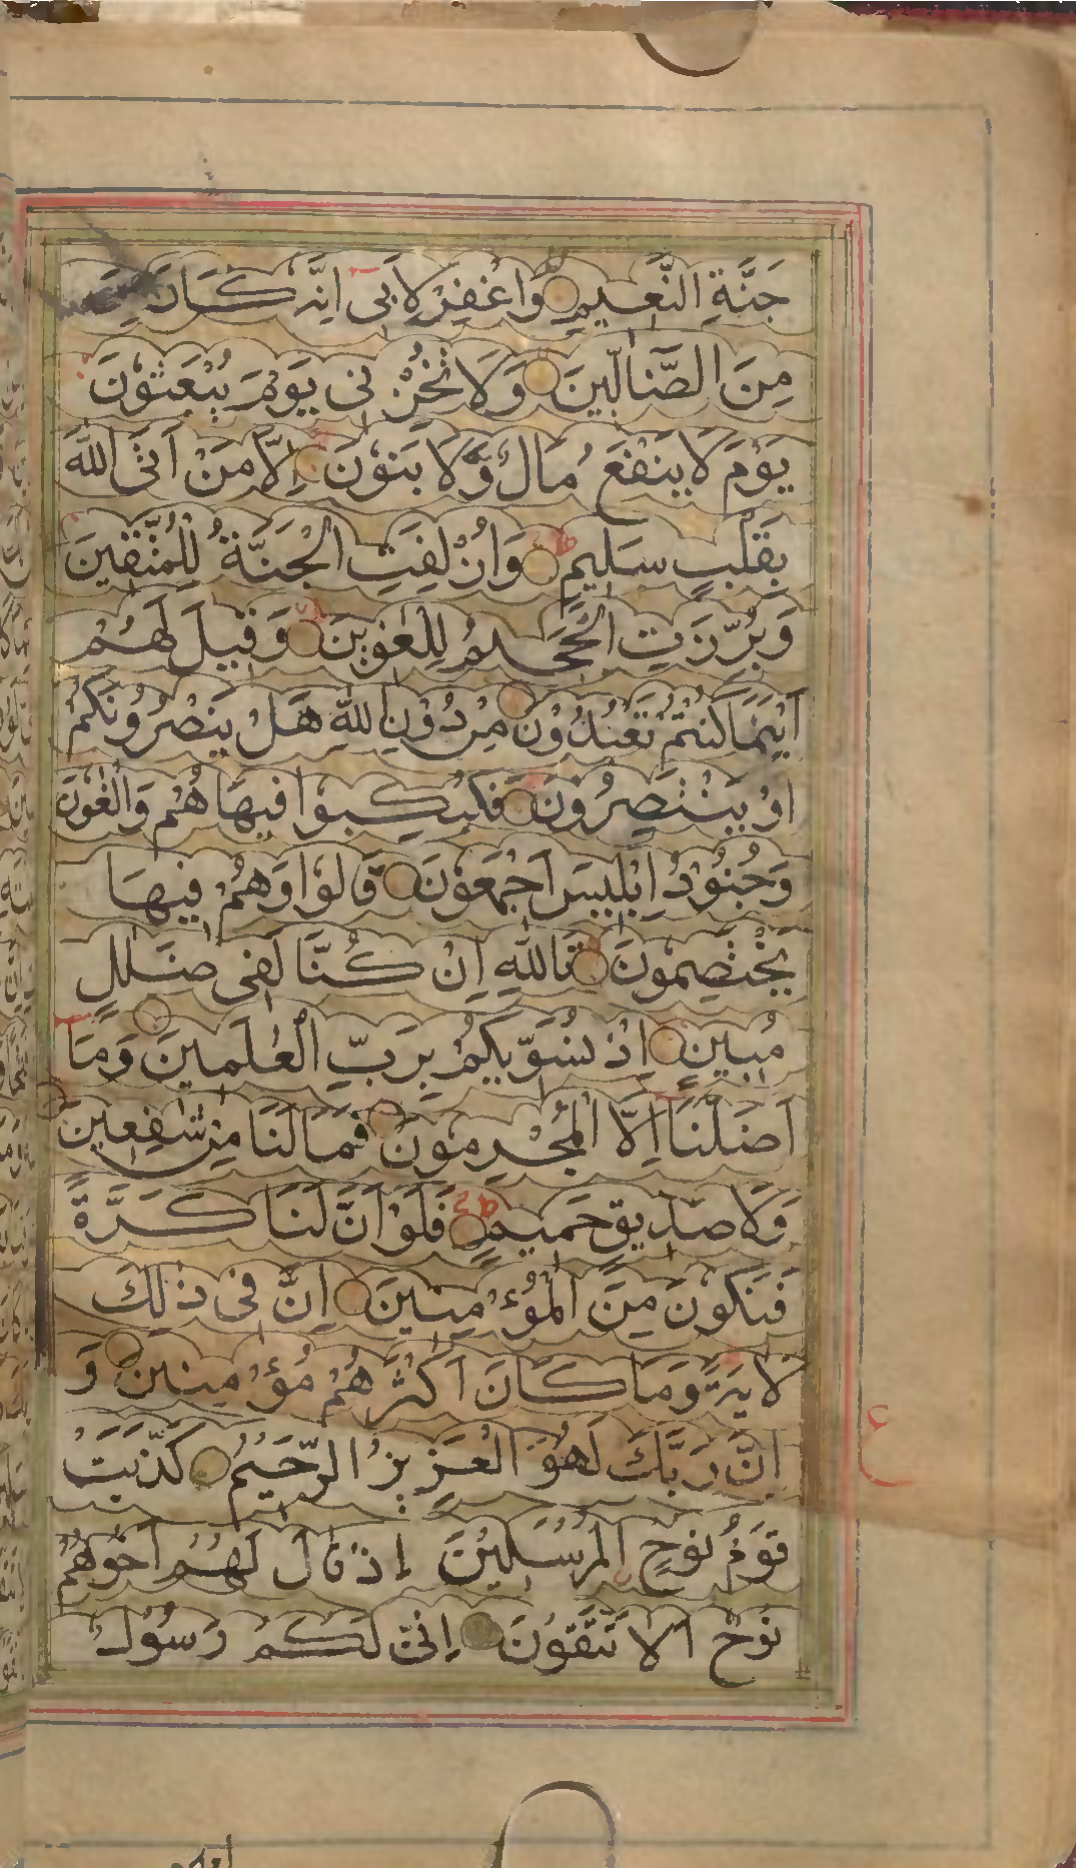 جَنَّةِ النَّعِيمِ وَاغْفِرْ لِاَبِى اِنَّهُ كَانَ
مِنَ الضَّآلِّينَ وَلَا تُخْزِنِى يَوْمَ يُبْعَثُونَ
يَوْمَ لَا يَنْفَعُ مَالٌ وَّلَا بَنُونَ اِلَّا مَنْ اَتَى اللّٰهَ
بِقَلْبٍ سَلِيمٍ وَاُزْلِفَتِ الْجَنَّةُ لِلْمُتَّقِينَ
وَبُرِّزَتِ الْجَحِيمُ لِلْغٰوِينَ وَقِيلَ لَهُمْ
اَيْنَمَا كُنْتُمْ تَعْبُدُوْنَ مِنْ دُوْنِ اللّٰهِ هَلْ يَنْصُرُونَكُمْ
اَوْ يَنْتَصِرُونَ فَكُبْكِبُوا فِيهَا هُمْ وَالْغٰوٗنَ
وَجُنُوْدُ اِبْلِيسَ اَجْمَعُونَ قَالُوا وَهُمْ فِيهَا
يَخْتَصِمُونَ تَاللّٰهِ اِنْ كُنَّا لَفِى ضَلٰلٍ
مُبِينٍ اِذْ نُسَوِّيكُمْ بِرَبِّ الْعٰلَمِينَ وَمَا
اَضَلَّنَا اِلَّا الْمُجْرِمُونَ فَمَا لَنَا مِنْ شٰفِعِينَ
وَلَا صَدِيقٍ حَمِيمٍ فَلَوْ اَنَّ لَنَا كَرَّةً
فَنَكُونَ مِنَ الْمُؤْمِنِينَ اِنَّ فِى ذٰلِكَ
لَاٰيَةً وَمَا كَانَ اَكْثَرُهُمْ مُؤْمِنِينَ وَ
اِنَّ رَبَّكَ لَهُوَ الْعَزِيزُ الرَّحِيمُ كَذَّبَتْ
قَوْمُ نُوحٍ الْمُرْسَلِيْنَ اِذْ قَالَ لَهُمْ اَخُوهُمْ
نُوحٌ اَلَا تَتَّقُونَ اِنِّى لَكُمْ رَسُولٌ
ع